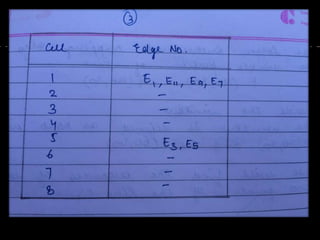 3
Cell Edge No.
1 E1, E11, E9, E7
2 -
3 -
4 -
5 E3, E5
6 -
7 -
8 -